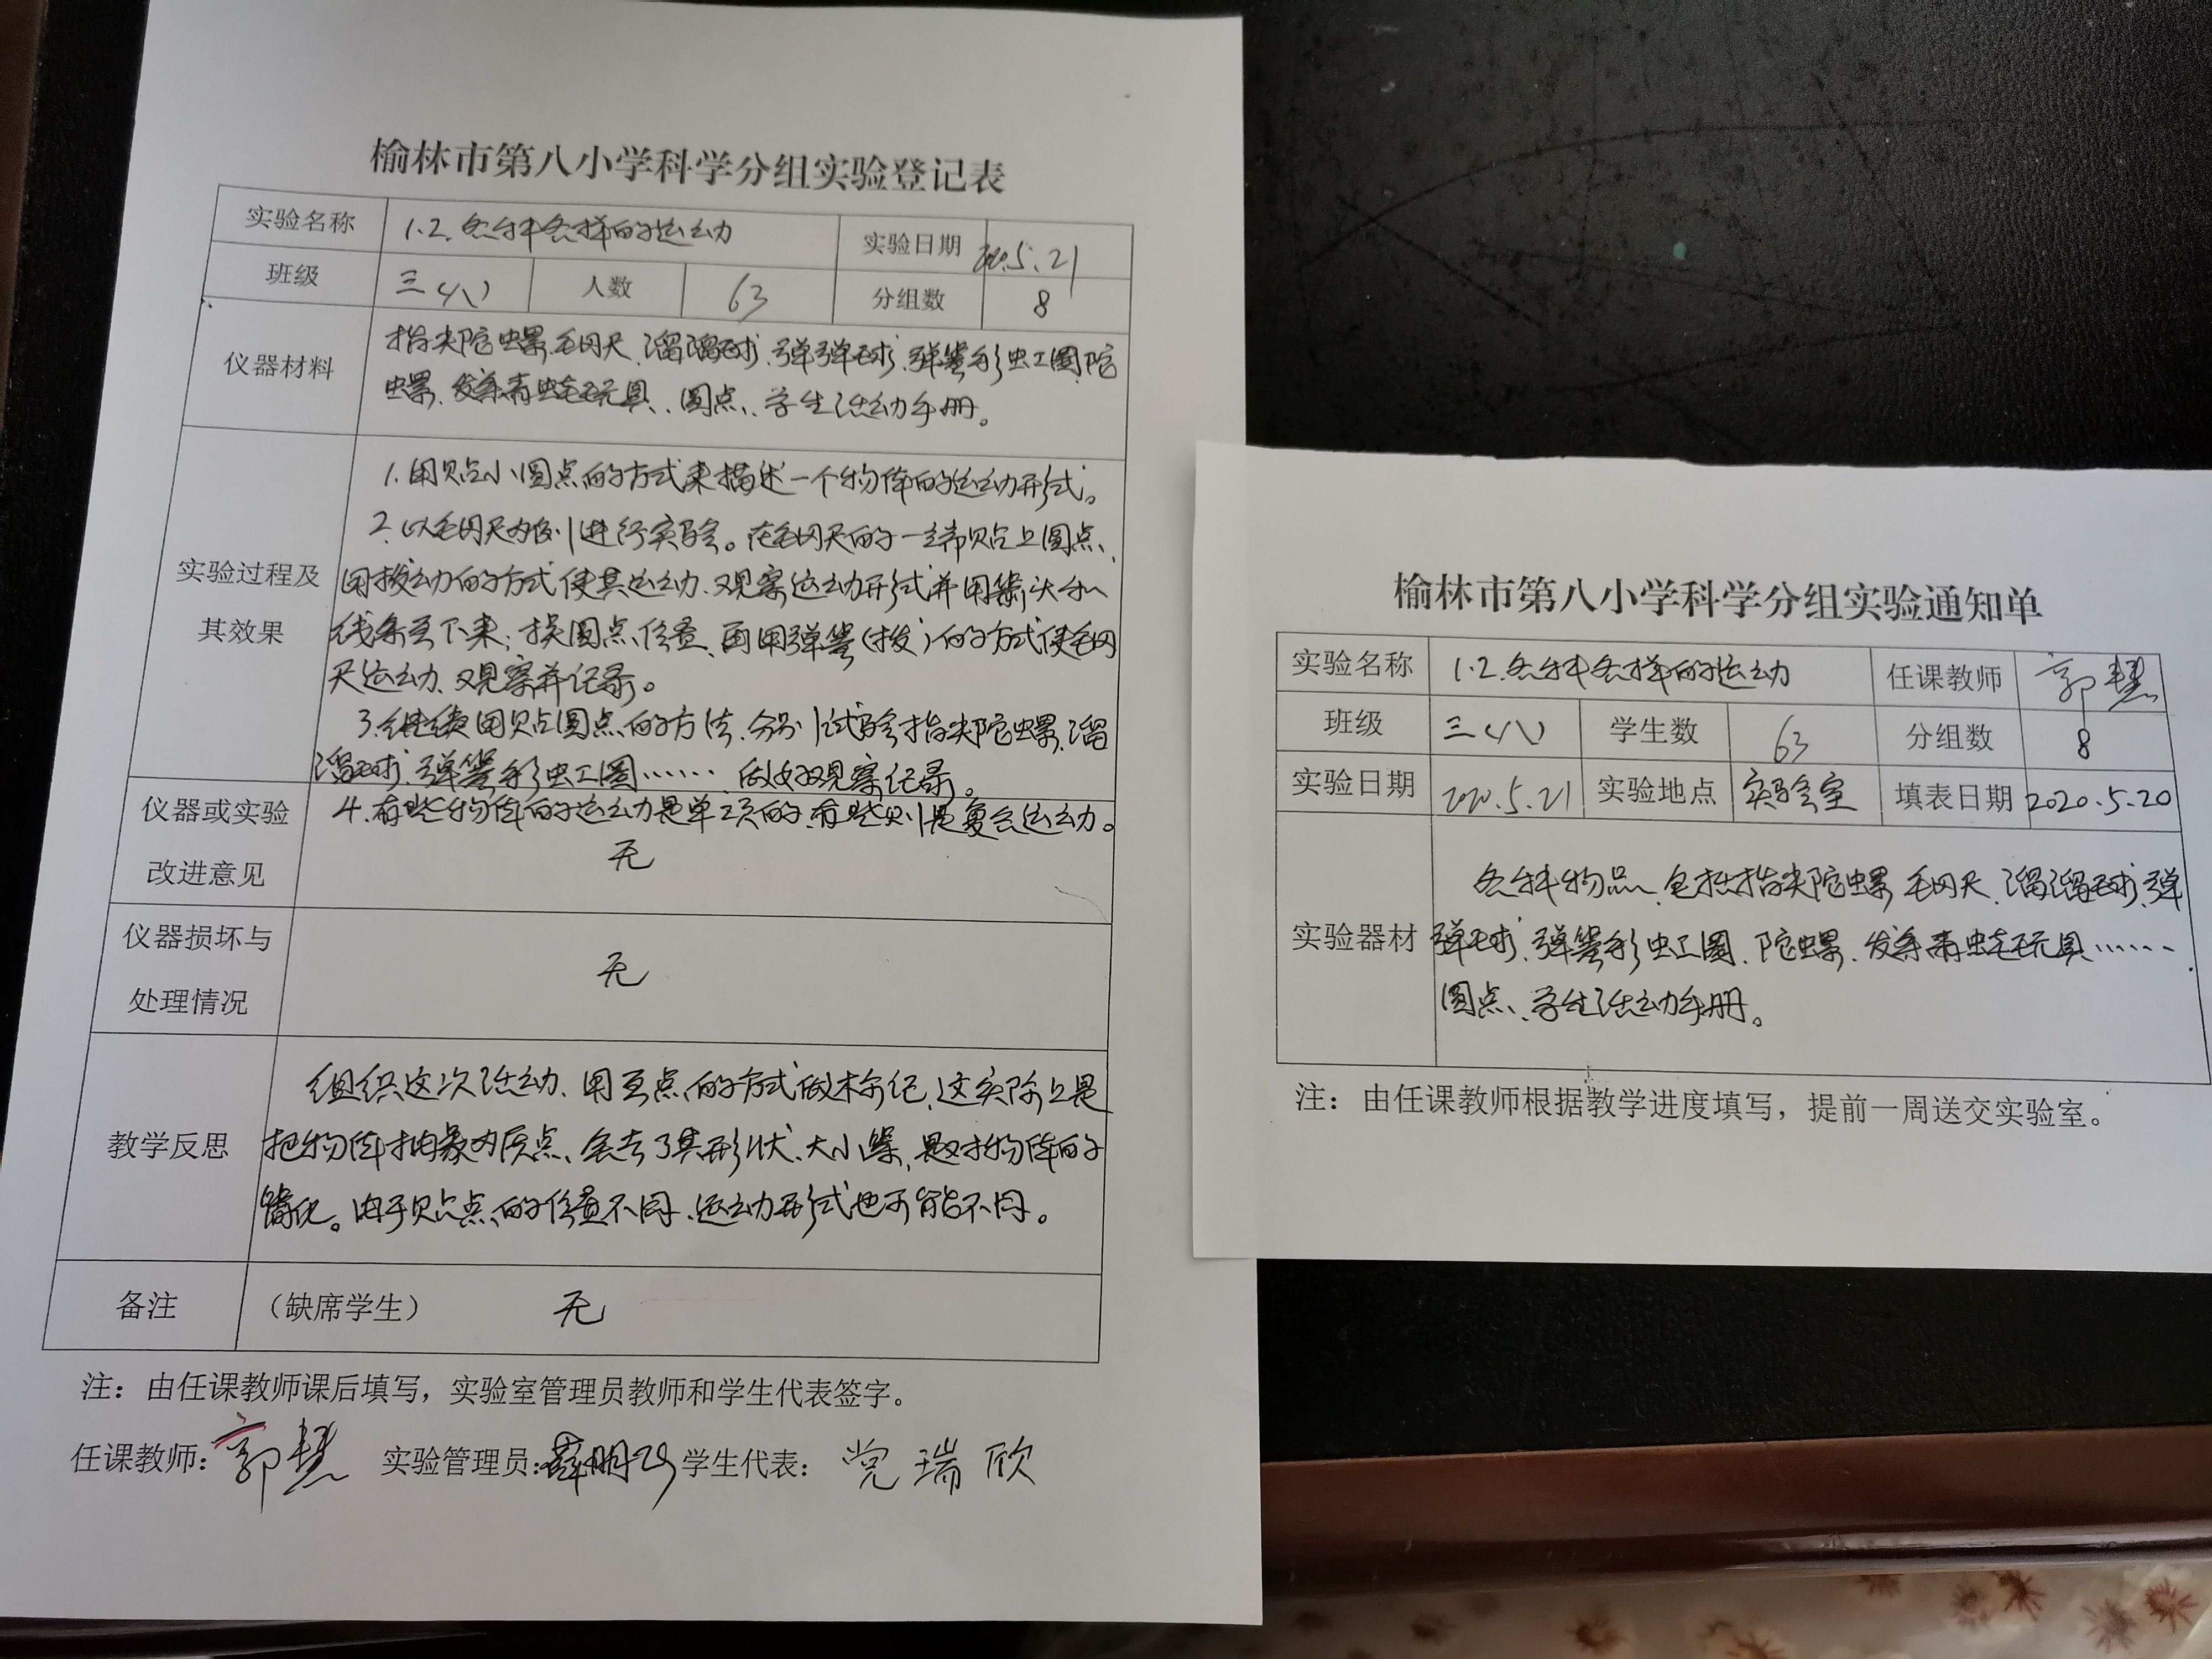 榆林市第八小学科学分组实验登记表
实验名称 1.2.各种各样的运动 实验日期 2020.5.21
班级 三(八) 人数 63 分组数 8
仪器材料
指尖陀螺、毛网尺、溜溜球、弹弹球、弹簧彩虹圈、陀
螺、发条青蛙玩具、圆点、学生活动手册。
实验过程及
其效果
1.用贴小圆点的方式来描述一个物体的运动形式。
2.以毛网尺为例进行实验。在毛网尺的一端贴上圆点、
用拨动的方式使其运动、观察运动形式并用箭头和
线条画下来;换圆点位置、再用弹簧(拨)的方式使毛网
尺运动、观察并记录。
3.继续用贴圆点的方法、分别试验指尖陀螺、溜
溜球、弹簧彩虹圈……做好观察记录。
4.有些物体的运动是单项的、有些则是复合运动。
仪器或实验
改进意见
无
仪器损坏与
处理情况
无
教学反思
组织这次活动、用互点的方式做标记、这实际上是
把物体抽象为质点、舍去了其形状、大小等,是对物体的
简化。由于贴点的位置不同、运动形式也可能不同。
备注 (缺席学生) 无
注:由任课教师课后填写,实验室管理员教师和学生代表签字。
任课教师:郭慧 实验管理员: 学生代表:党瑞欣
榆林市第八小学科学分组实验通知单
实验名称 1.2.各种各样的运动 任课教师 郭慧
班级 三(八) 学生数 63 分组数 8
实验日期 2020.5.21 实验地点 实验室 填表日期 2020.5.20
实验器材
各种物品、包括指尖陀螺、毛网尺、溜溜球、弹
弹球、弹簧彩虹圈、陀螺、发条青蛙玩具……
圆点、学生活动手册。
注:由任课教师根据教学进度填写,提前一周送交实验室。